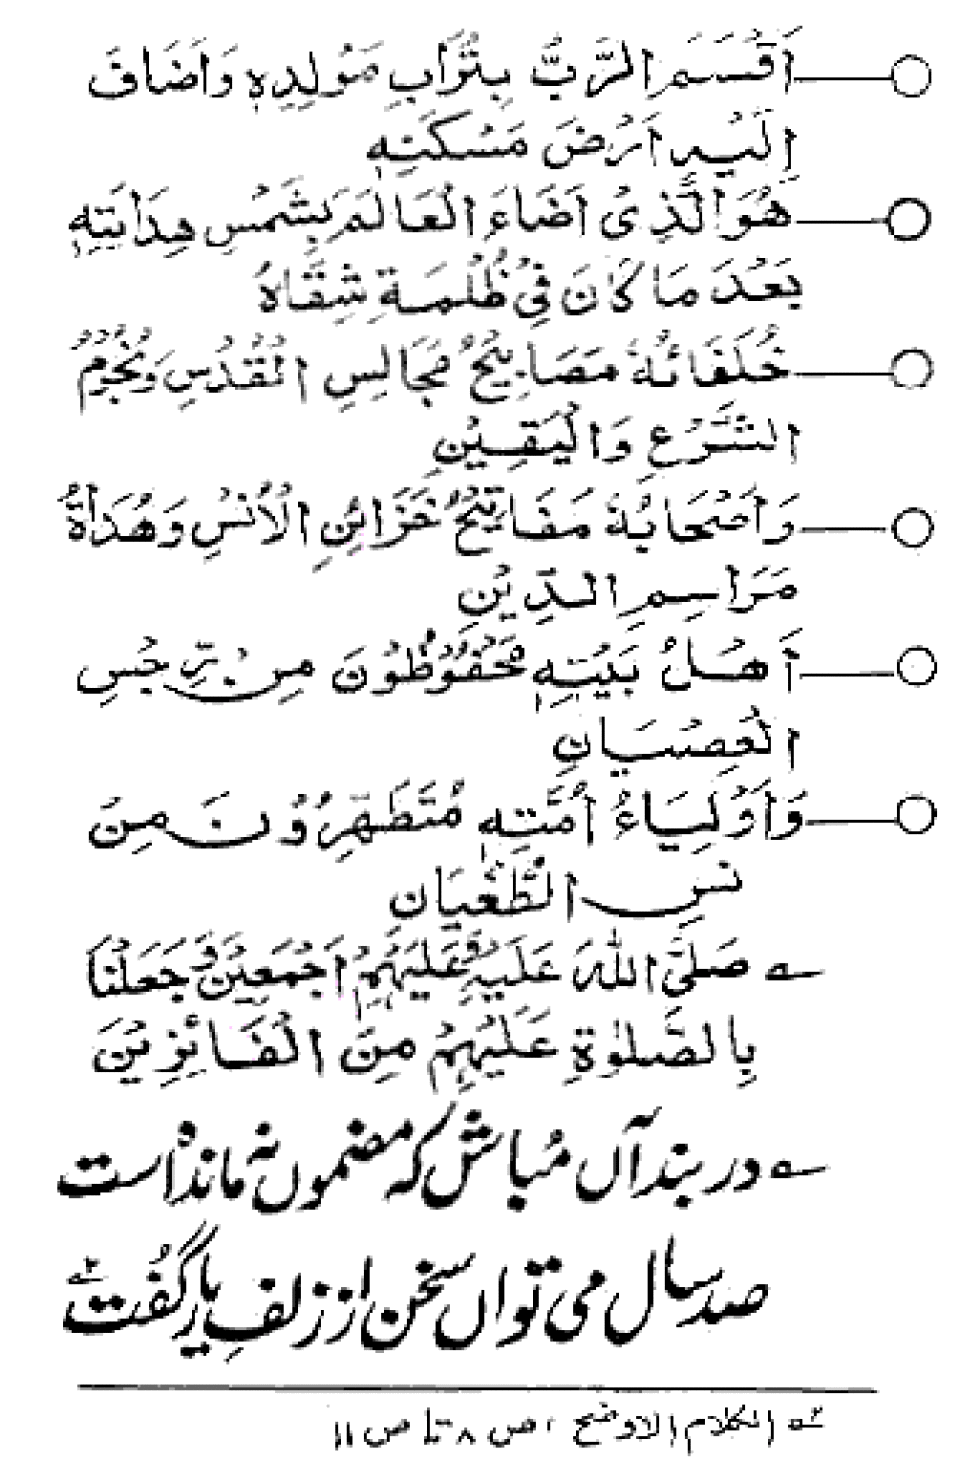 اَقْسَمَ الرَّبُّ بِتُرَابِ مَوْلِدِهٖ وَاَضَافَ
اِلَيْهِ اَرْضَ مَسْكَنِهٖ
هُوَ الَّذِیْ اَضَاءَ الْعَالَمَ بِشَمْسِ هِدَايَتِهٖ
بَعْدَ مَا كَانَ فِیْ ظُلْمَةِ شِقَاهُ
خُلَفَائُهٗ مَصَابِيْحُ مَجَالِسِ الْقُدْسِ وَنُجُوْمُ
الشَّرْعِ وَالْيَقِيْنِ
وَاَصْحَابُهٗ مَفَاتِيْحُ خَزَائِنِ الْاُنْسِ وَهُدَاةُ
مَرَاسِمِ الدِّيْنِ
اَهْلُ بَيْتِهٖ مَحْفُوْظُوْنَ مِنْ رِّجْسِ
الْعِصْيَانِ
وَاَوْلِيَاءُ اُمَّتِهٖ مُتَطَهِّرُوْنَ مِنْ
نَسِ الطُّغْيَانِ
؎ صَلَّی اللّٰهُ عَلَيْهِ وَعَلَيْهِمْ اَجْمَعِيْنَ وَجَعَلْنَا
بِالصَّلٰوةِ عَلَيْهِمْ مِنَ الْفَائِزِيْنَ
؎ در بند آں مُباش کہ مضموں نہ ماندہ است
صد سال می تواں سخن از زلفِ یار گُفت ؎۲
؎۲ الکلام الاوضح ، ص ۸ تا ص ۱۱